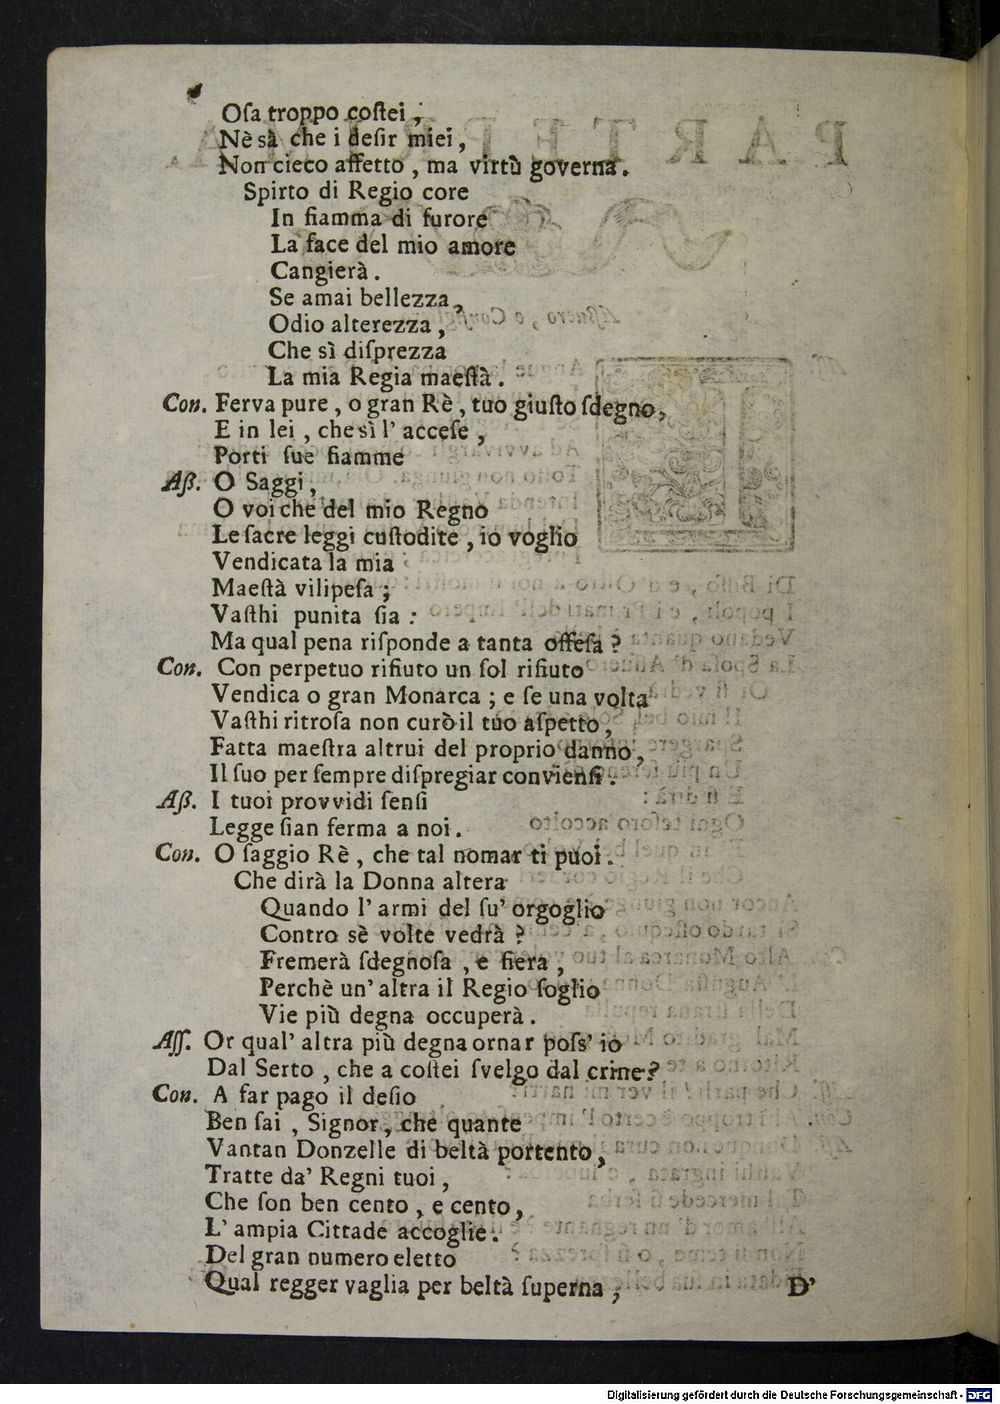 4
Oſa troppo coſtei ,
Nè sà che i deſir miei ,
Non cieco affetto , ma virtù governa .
Spirto di Regio core
In fiamma di furore
La face del mio amore
Cangierà .
Se amai bellezza ,
Odio alterezza ,
Che sì diſprezza
La mia Regia maeſtà .
Con. Ferva pure , o gran Rè , tuo giuſto ſdegno ,
E in lei , che sì l' acceſe ,
Porti ſue fiamme
Aß. O Saggi ,
O voi che del mio Regno
Le ſacre leggi cuſtodite , io voglio
Vendicata la mia
Maeſtà vilipeſa ;
Vaſthi punita ſia :
Ma qual pena riſponde a tanta offeſa ?
Con. Con perpetuo rifiuto un ſol rifiuto
Vendica o gran Monarca ; e ſe una volta
Vaſthi ritroſa non curò il tuo aſpetto ,
Fatta maeſtra altrui del proprio danno ,
Il ſuo per ſempre diſpregiar convienſi .
Aß. I tuoi provvidi ſenſi
Legge ſian ferma a noi .
Con. O ſaggio Rè , che tal nomar ti puoi .
Che dirà la Donna altera
Quando l' armi del ſu' orgoglio
Contro sè volte vedrà ?
Fremerà ſdegnoſa , e fiera ,
Perchè un' altra il Regio ſoglio
Vie più degna occuperà .
Aſſ. Or qual' altra più degna ornar poſs' io
Dal Serto , che a coſtei ſvelgo dal crine ?
Con. A far pago il deſio
Ben ſai , Signor , che quante
Vantan Donzelle di beltà portento ,
Tratte da' Regni tuoi ,
Che ſon ben cento , e cento ,
L' ampia Cittade accoglie .
Del gran numero eletto
Qual regger vaglia per beltà ſuperna ,
D'
Digitalisierung gefördert durch die Deutsche Forschungsgemeinschaft - DFG